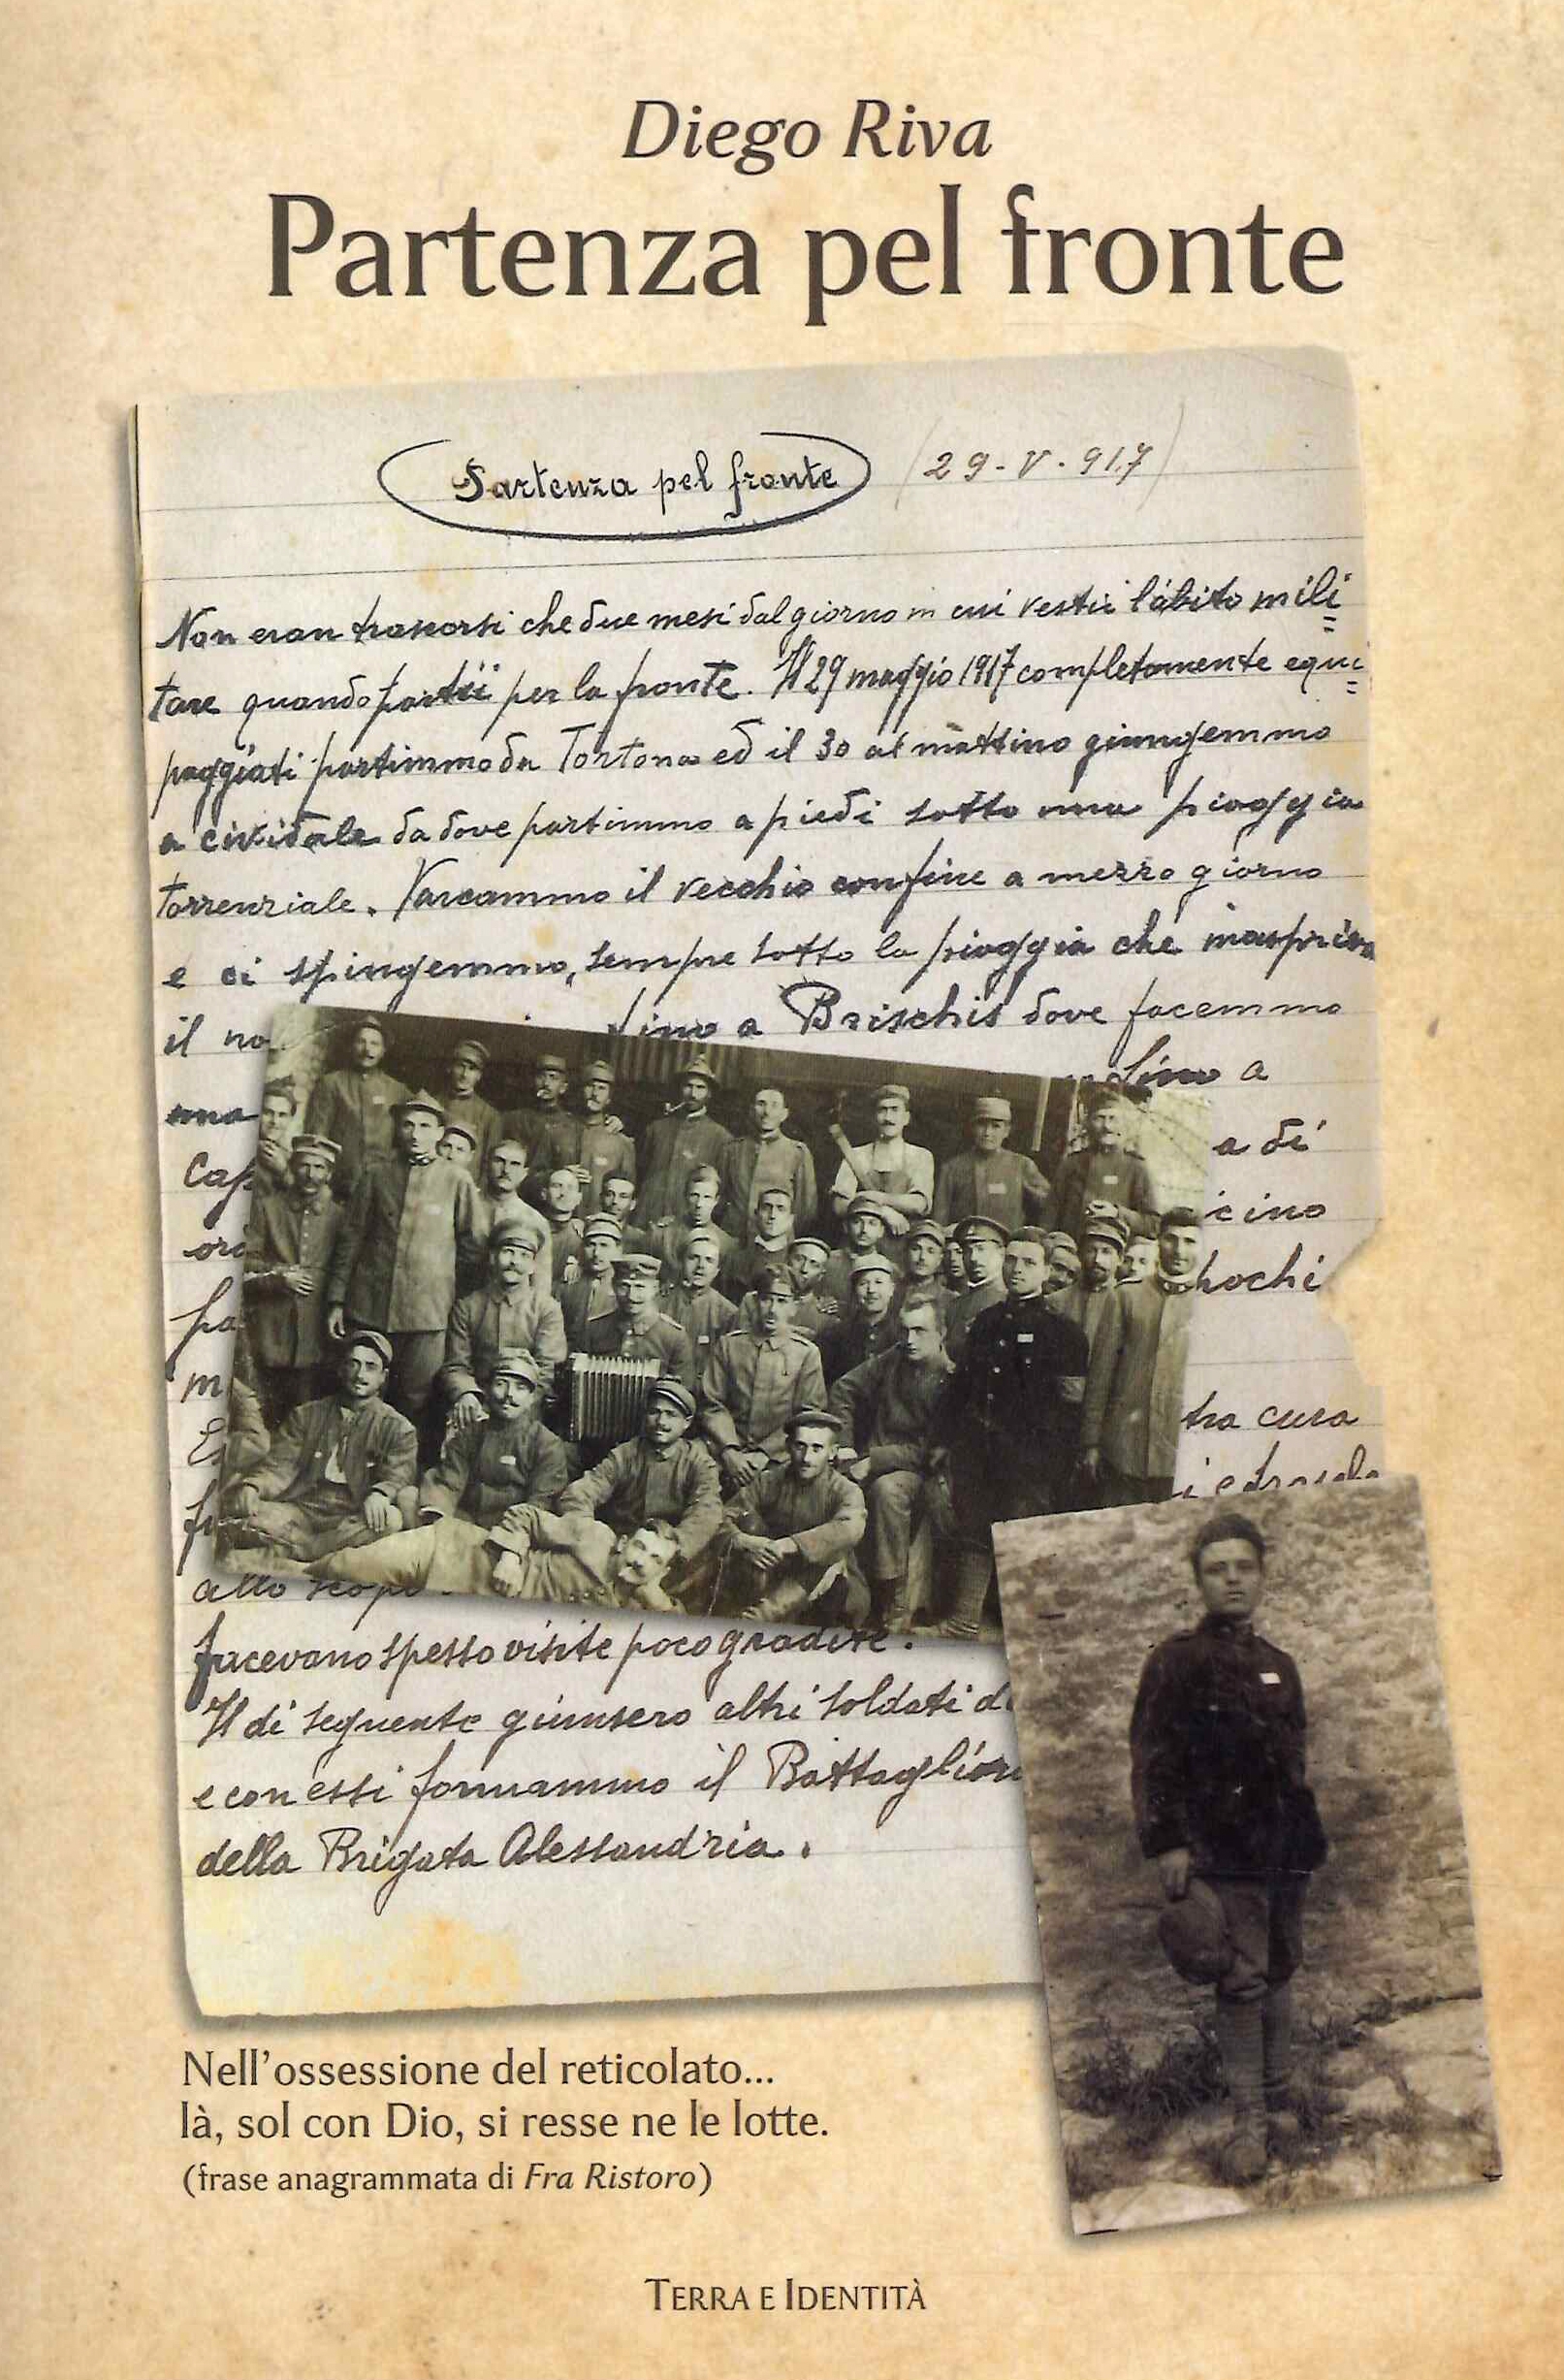 Diego Riva
Partenza pel fronte
Partenza pel fronte (29-V-917)
Non eran trascorsi che due mesi dal giorno in cui vestii l'abito mili
tare quando partii per la fronte. Il 29 maggio 1917 completamente equi
paggiati partimmo da Tortona ed il 30 al mattino giungemmo
a cividale da dove partimmo a piedi sotto una pioggia
torrenziale. Varcammo il vecchio confine a mezzo giorno
e ci spingemmo, sempre sotto la pioggia che inaspriva
il no fino a Brischis dove facemmo
una fino a
Cap a di
icino
pa hochi
m
tra cura
i e
allo scop
facevano spesso visite poco gradite.
Il dì seguente giunsero altri soldati d
e con essi formammo il Battaglion
della Brigata Alessandria.
Nell'ossessione del reticolato...
là, sol con Dio, si resse ne le lotte.
(frase anagrammata di Fra Ristoro)
TERRA E IDENTITÀ